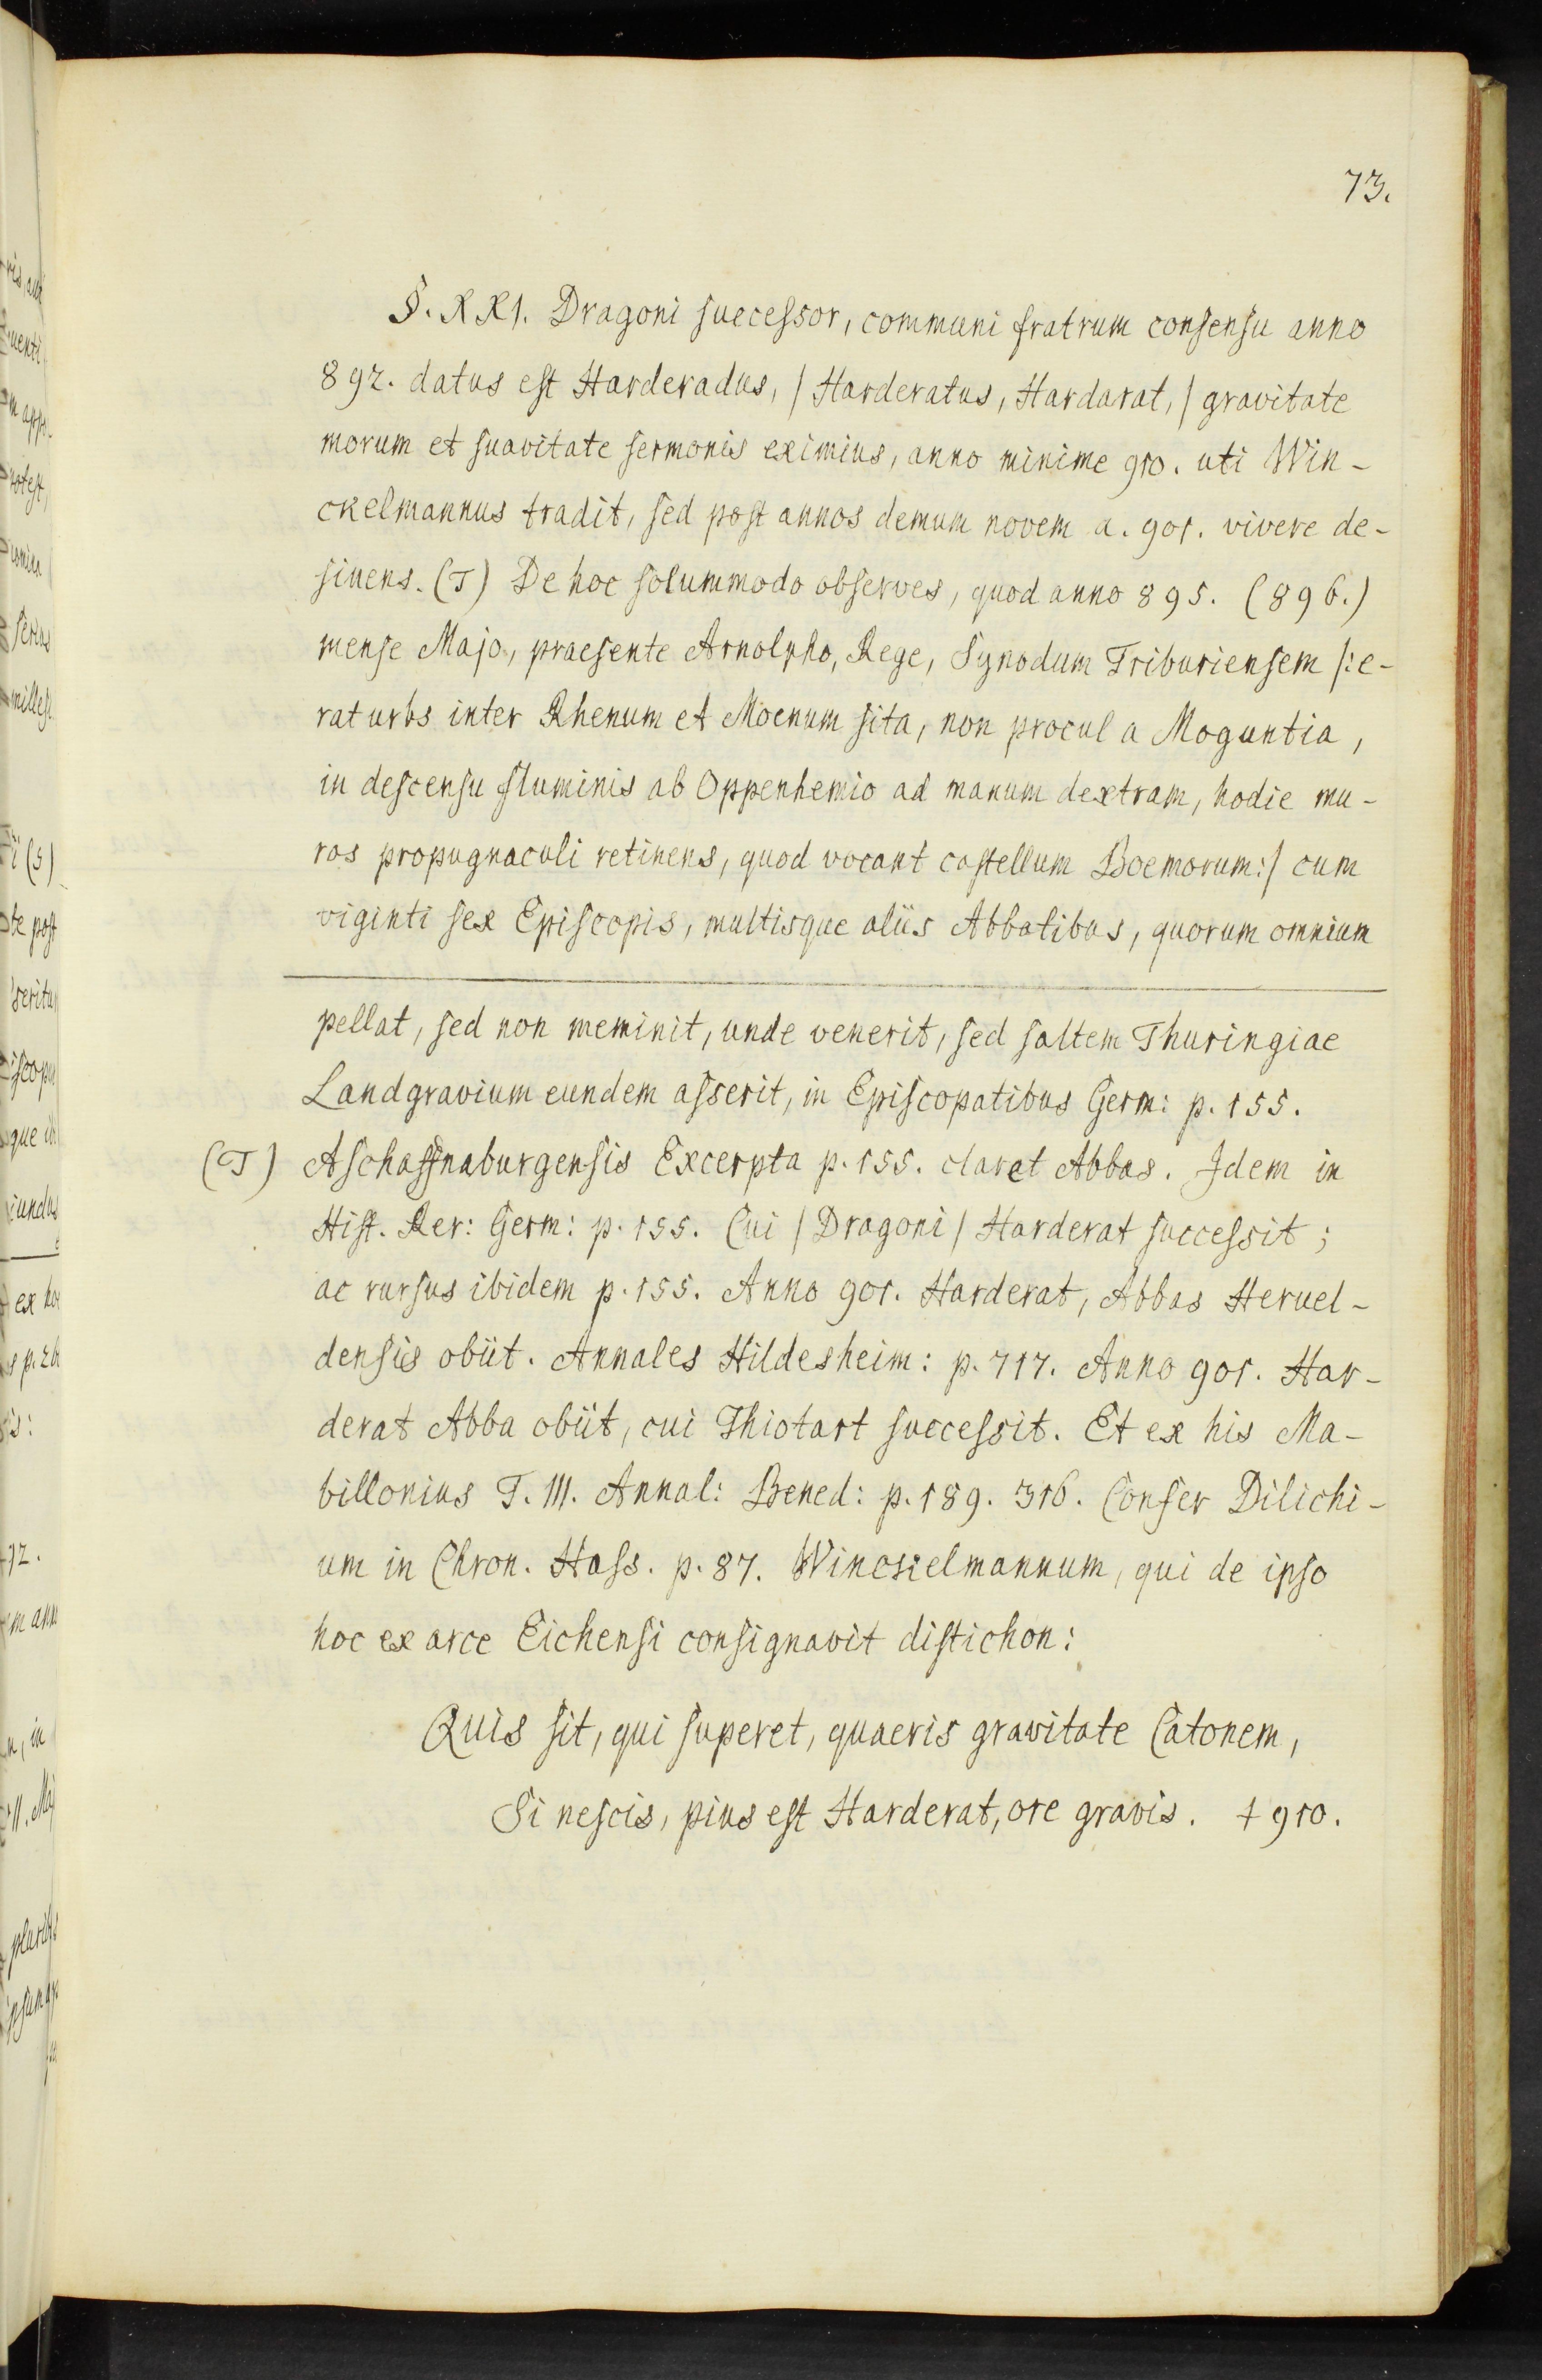 73.
§. XXI. Dragoni successor, communi fratrum consensu anno
892. datus est Harderadus, / Harderatus, Hardarat, / gravitate
morum et suavitate sermonis eximius, anno minime 910. uti Win-
ckelmannus tradit, sed post annos demum novem a. 901. vivere de-
sinens. (T) De hoc solummodo observes, quod anno 895. (896.)
mense Majo, praesente Arnolpho, Rege, Synodum Triburiensem /: e-
rat urbs inter Rhenum et Moenum sita, non procul a Moguntia,
in descensu fluminis ab Oppenhemio ad manum dextram, hodie mu-
ros propugnaculi retinens, quod vocant castellum Boemorum :/ cum
viginti sex Episcopis, multisque aliis Abbatibus, quorum omnium
pellat, sed non meminit, unde venerit, sed saltem Thuringiae
Landgravium eundem asserit, in Episcopatibus Germ: p. 155.
(T) Aschaffnaburgensis Excerpta p. 155. claret Abbas. Idem in
Hist. Rer: Germ: p. 155. Cui / Dragoni / Harderat successit;
ac rursus ibidem p. 155. Anno 901. Harderat, Abbas Heruel-
densis obiit. Annales Hildesheim: p. 717. Anno 901. Har-
derat Abba obiit, cui Thiotart successit. Et ex his Ma-
billonius T. III. Annal: Bened: p. 189. 316. Confer Dilichi-
um in Chron. Hass. p. 87. Winckelmannum, qui de ipso
hoc ex arce Eichensi consignavit distichon:
Quis sit, qui superet, quaeris gravitate Catonem,
Si nescis, pius est Harderat, ore gravis. † 910.